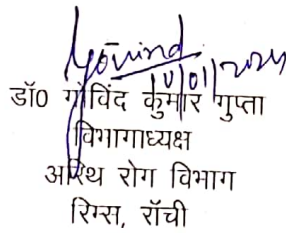 Govind
10/01/2024
डॉ0 गोविंद कुमार गुप्ता
विभागाध्यक्ष
अस्थि रोग विभाग
रिम्स, राँची